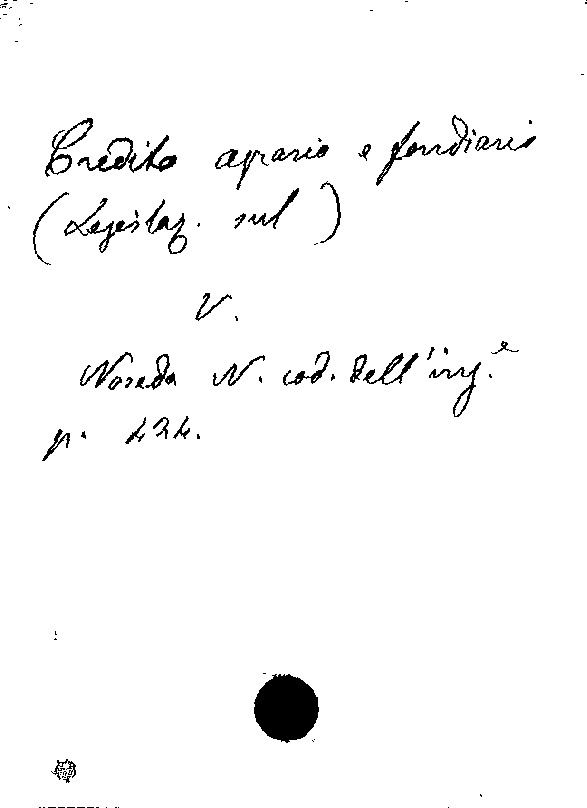 Credito agrario e fondiario
(Legislaz. sul )
V.
Noseda N. cod. dell'ing.e
p. 424.